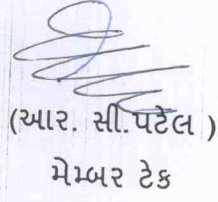 (આર. સી.પટેલ )
મેમ્બર ટેક